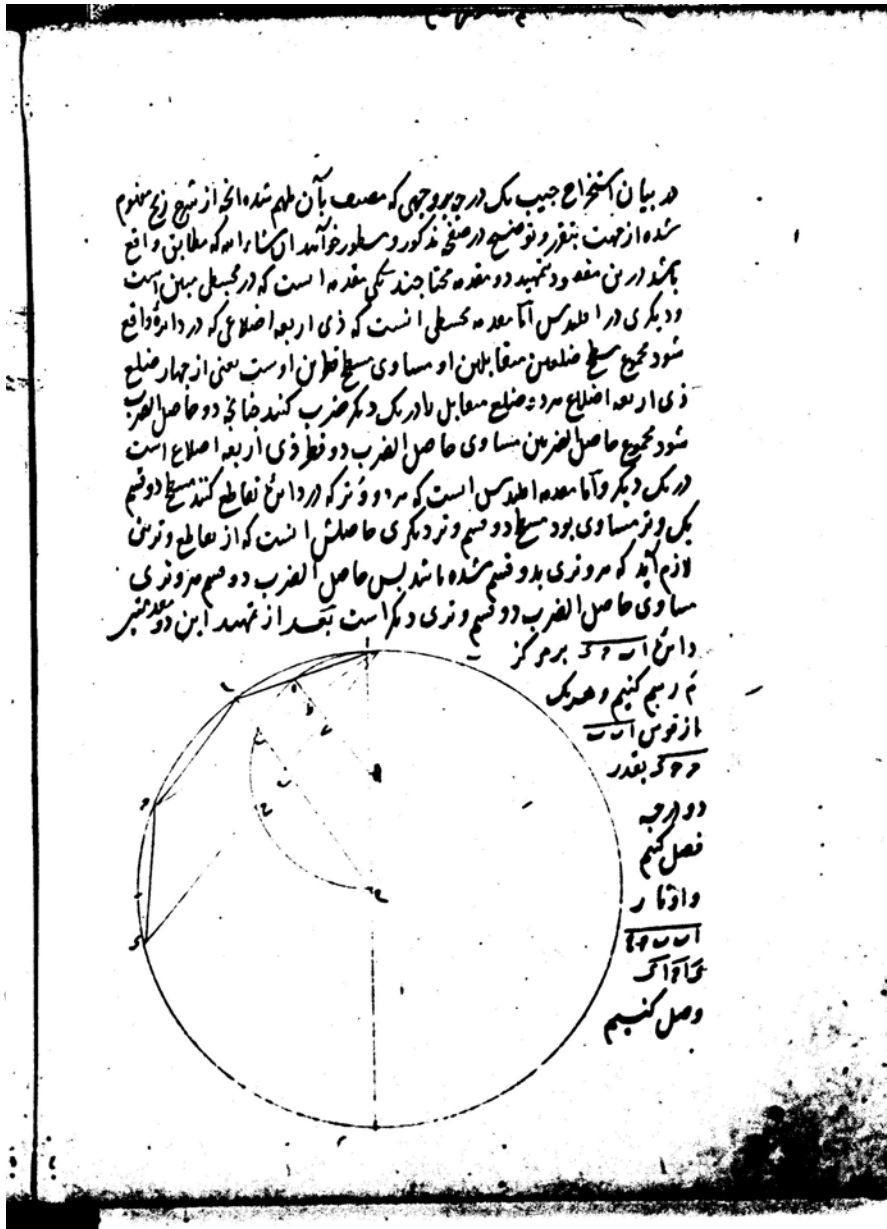 در بیان استخراج جیب یک درجه بروجهی که مصنف بآن ملهم شده انچه از شرح زیج مفهوم
شده از جهت و توضیح در صفحه مذکور و مسطور خواهد ان شاء الله که مطابق واقع
باشد درین مقصود تمهید دو مقدمه محتاجند یکی مقدمه ایست که در مجسطی مبین است
و دیگری در اقلیدس اما مقدمه مجسطی انست که ذی اربعه اضلاعی که در دائرهٔ واقع
شود مجموع مسطح ضلعین متقابلین او مساوی مسطح قطرین اوست یعنی از چهار ضلع
ذی اربعه اضلاع هر دو ضلع متقابل را در یک دیگر ضرب کنند چنانچه دو حاصل الضرب
شود مجموع حاصل الضربین مساوی حاصل الضرب دو قطر ذی اربعه اضلاع است
در یک دیگر و اما مقدمه اقلیدس است که هر دو وتر که در دائرهٔ تقاطع کنند مسطح دو قسم
یک وتر مساوی بود مسطح دو قسم وتر دیگری حاصلش انست که از تقاطع وترین
لازم آید که هر وتری بدو قسم شده باشد پس حاصل الضرب دو قسم هر وتری
مساوی حاصل الضرب دو قسم وتری دیگر است بعد از تمهید این دو مقدمه
دائرهٔ ا ب ج د بر مرکز
رسم کنیم و هر یک
از قوس ا ب ب
ج ج د بقدر
دو درجه
فصل کنیم
و اوتار
ا ب ب ج
وصل کنیم